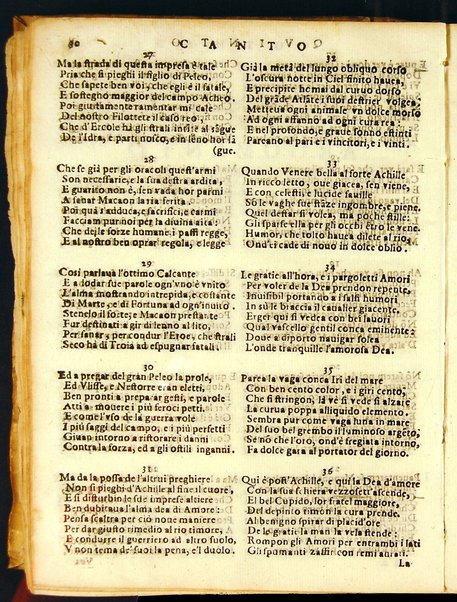 80
CANTO
27
Ma la strada di questa impresa è tale
Pria che si pieghi il figlio di Peleo,
Che sapete ben voi, che egli è il fatale,
E sostegno maggior del campo Acheo.
Poi giustamente ramentar mi cale
Del nostro Filottete il caso reo,
Che d'Ercole hà gli strali infite al sãgue
De l'Idra, e parti nosco, e in seno hor lã
(gue.
28
Che se già per gli oracoli quest'armi
Son necessarie, e la sua destra ardita,
E guarito non è, sen vada hor parmi
A sanar Macaon la ria ferita.
Poi quà s'adduca, e sacrifici, e carmi
Facciam pur noi per la divina aita:
Che de le forze humane i passi regge,
E al nostro ben oprar regola, e legge
29
Così parlaua l'ottimo Calcante
E a lodar sue parole ogn'vno è vnito
L'alma mostrando intrepida, e costante
Di Marte, e di Fortuna ad ogn'inuito.
Stenelo il forte, e Macaon prestante
Fur destinati a gir dentro al lito,
Per sanar, e per condur l'Eroe, che strali
Seco hà di Troia ad espugnar fatali.
30
Ed a pregar del gran Peleo la prole,
Ed Vlisse, e Nestorre eran eletti,
Ben pronti a prepa ar gesti, e parole
Atti a mouere i più feroci petti.
E come l'vso de la guerra vole
I più saggi del campo, e i più perfetti
Giuan intorno a ristorare i danni
Contra la forza, ed a gli ostili inganni.
31
Ma da la possa de l'altrui preghiere
Non si pieghi d'Achille al fine il cuore,
E si disturbin le sde imprese altiere
Ben dubitaua l'alma dea di Amore:
Pensa scaltra per ciò none maniere
Per dar giusto rimedio al rio timore,
E condurre il guerriero ad altro suolo,
V non tema de' suoi la pena, e'l duolo.
32
Già la metà del lungo obliquo corso
L'oscura notte in Ciel finito hauea,
E precipite homai dal curuo dorso
Del grãde Atlãte i suoi destrier volgea.
Metteua ogni animale vn dolce morso
Ad ogni affanno ad ogni cura rea:
E nel profondo, e graue sonno estinti
Pareano al pari i vincitori, e i vinti.
33
Quando Venere bella al forte Achille
In ricco letto, oue giacea, sen viene,
E con celesti, e lucide fauille
Sò le vaghe sue stãze ingombre, e piene.
Quel destar si volea, ma poche stille
Gli sparse ella per gli occhi étro le vene.
Humor, che tolto hauea dilete al rio,
Ond'ei cade di nouo in dolce oblio.
34
Le gratie all'hora, e i pargoletti Amori
Per voler de la Dea prendon repente,
Inuisibil portando a i falsi humori
In sù le braccia il caualier giacente.
Erger qui si vedea con bei lauori
Qual vascello gentil conca eminente:
Doue a diporto nauigar solea
L'onde tranquille l'amorosa Dea.
35
Parea la vaga conca Iri del mare
Con ben cento color, e i giri cento,
Che si stringon, là ve si vede si alzare
La curua poppa al liquido elemento.
Sembra pur come vaga luna in mare
Del suo bel grembo il luminoso argẽto,
Se nò che l'oro, ond'è fregiata intorno,
Fa dolce gara al portator del giorno.
36
Qui è post'Achille, e qui la Dea d'amore
Con la sua schiera vezzosett'ascende,
E'l bel Cupido, lor fratel maggiore,
Del depinto rimon la cura prende.
Al benigno spirar di placid'ore
De le gratie la man la vela stende:
Rompon gli Amori per entrambi i lati
Gli spumanti zaffir con remi aurati.
La